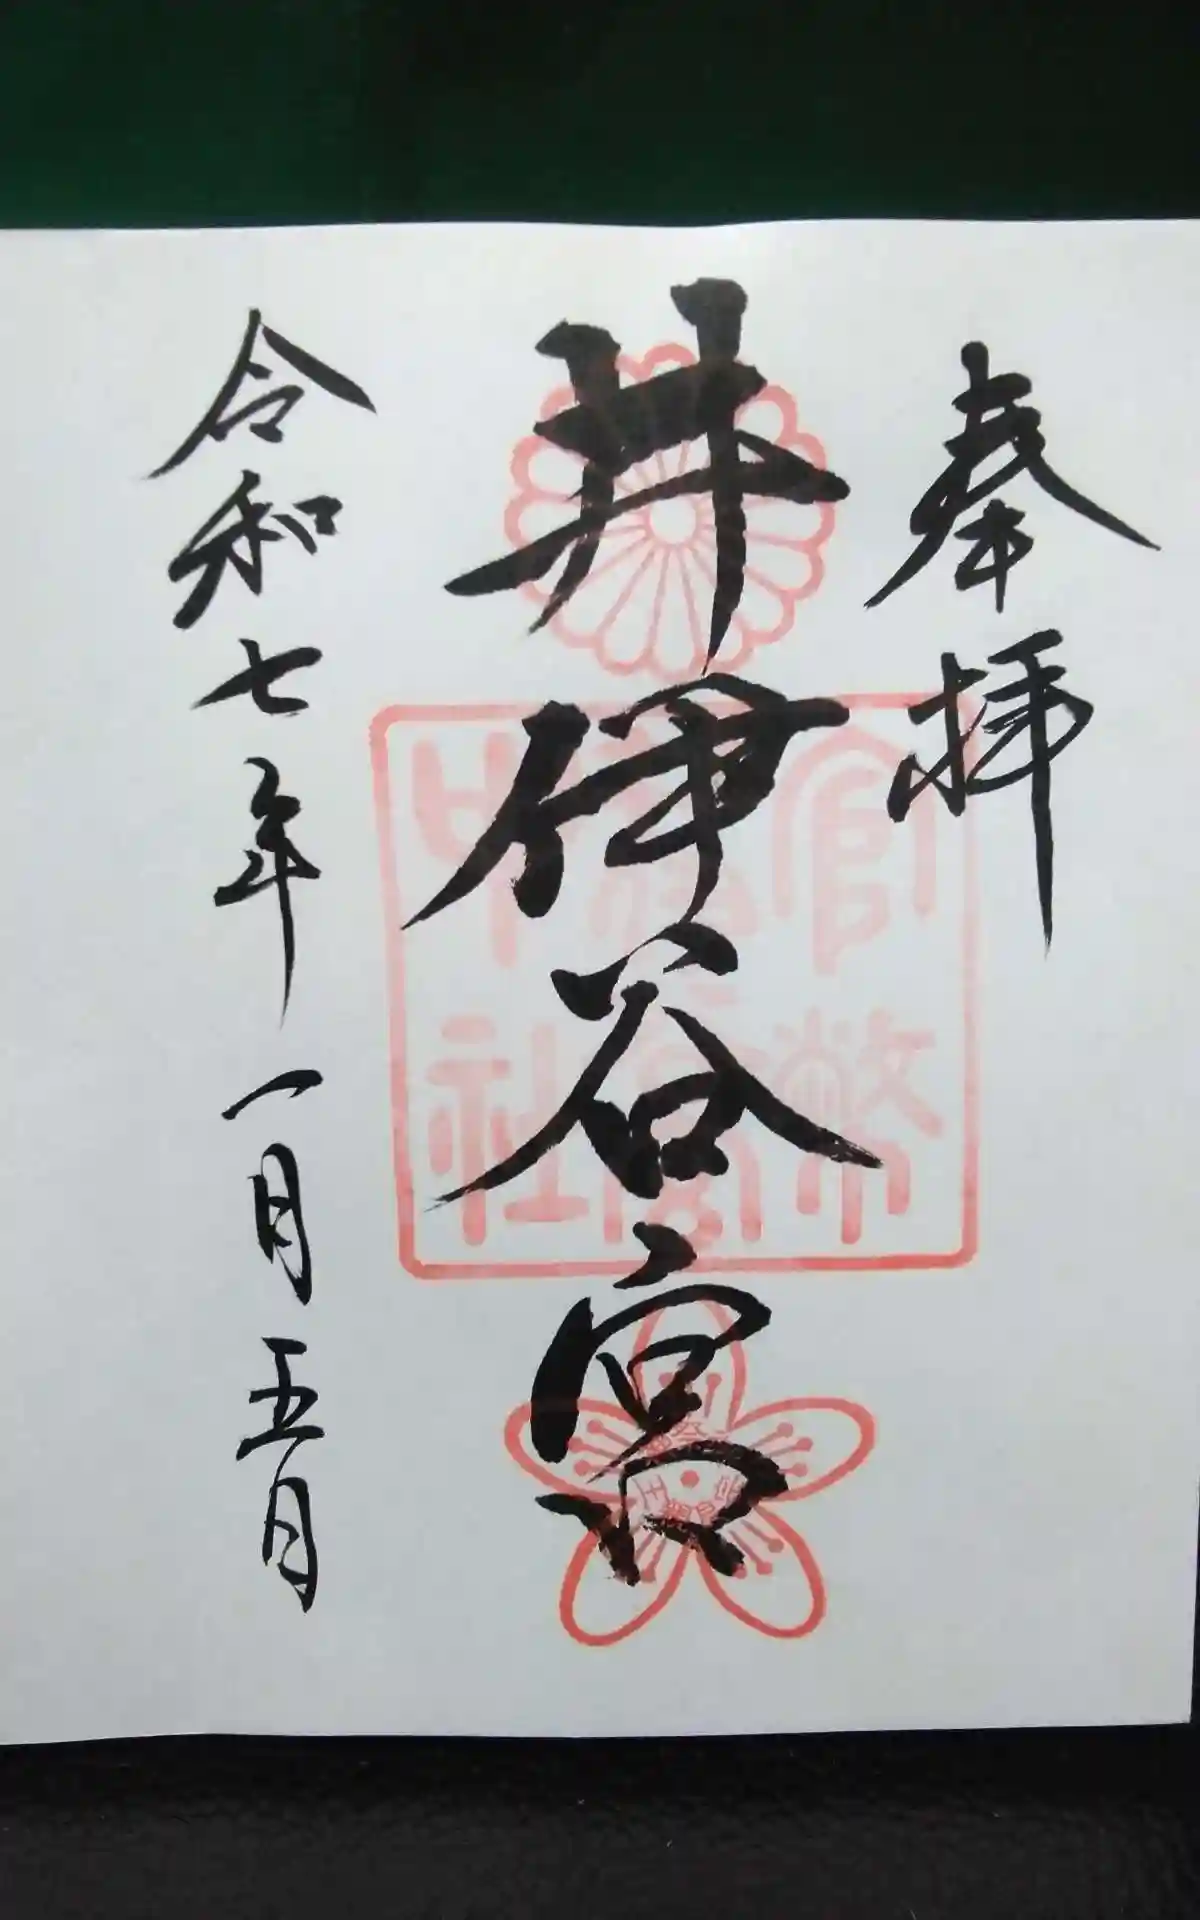 奉拝
井伊谷宮
令和七年一月五日
官幣
中社